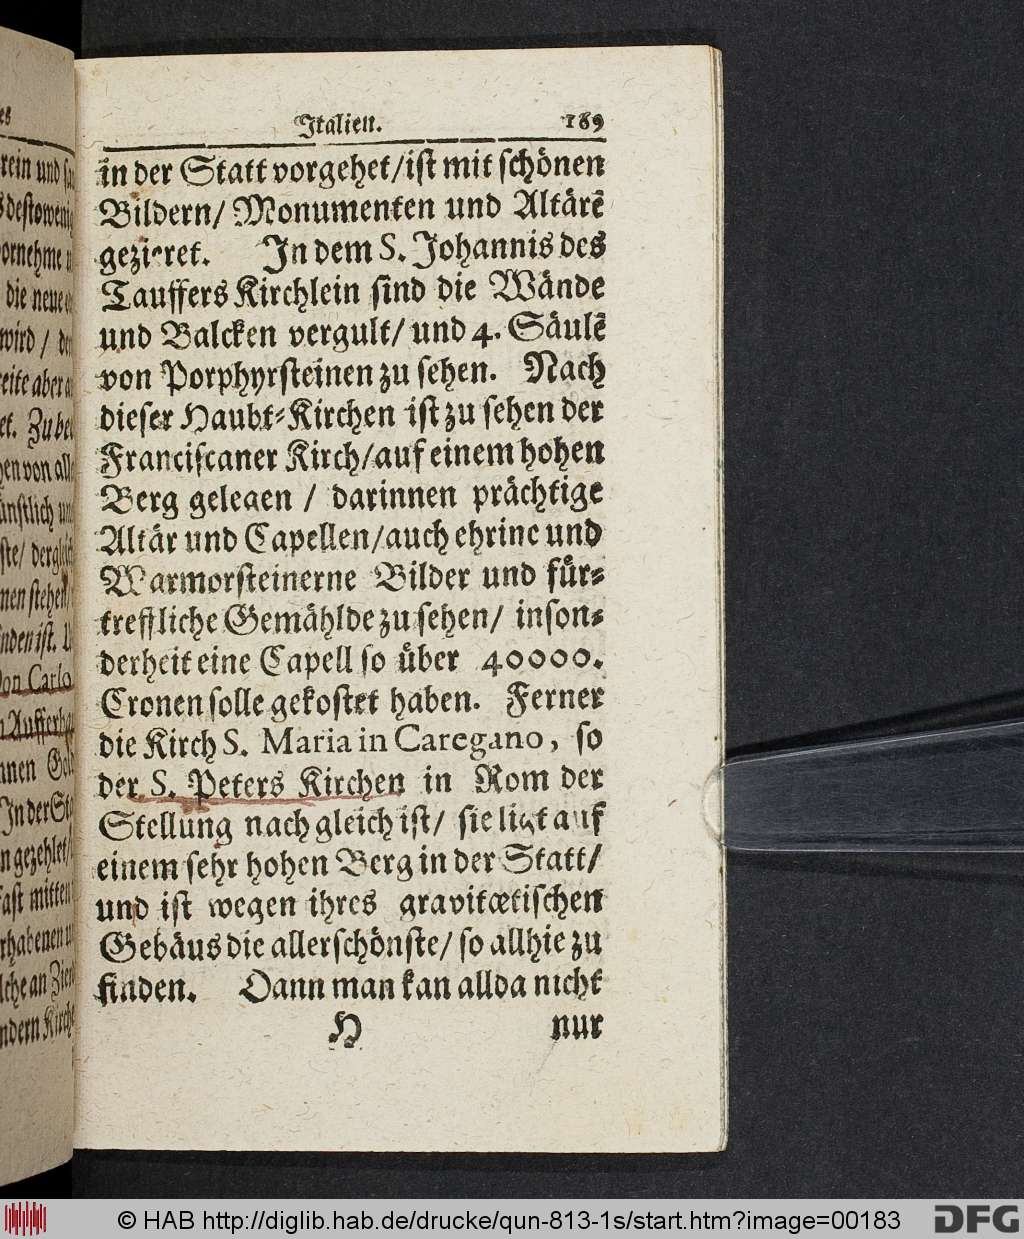 Italien. 189
in der Statt vorgehet/ist mit schönen
Bildern/ Monumenten und Altärẽ
gezieret. In dem S. Johannis des
Tauffers Kirchlein sind die Wände
und Balcken vergult/ und 4. Säulẽ
von Porphyrsteinen zu sehen. Nach
dieser Haubt-Kirchen ist zu sehen der
Franciscaner Kirch/auf einem hohen
Berg gelegen / darinnen prächtige
Altär und Capellen/auch ehrine und
Marmorsteinerne Bilder und für-
treffliche Gemählde zu sehen/ inson-
derheit eine Capell so über 40000.
Cronen solle gekostet haben. Ferner
die Kirch S. Maria in Caregano, so
der S. Peters Kirchen in Rom der
Stellung nach gleich ist/ sie ligt auf
einem sehr hohen Berg in der Statt/
und ist wegen ihres gravitætischen
Gebäus die allerschönste/ so allhie zu
finden. Dann man kan allda nicht
H nur
es
rein und
destowenig
vornehme
die neue
wird /
eite aber
et. Zu
en von
nstlich
ste/
nen stehen
nden ist.
on Carlo
nnen
In der
n gezehlet/
ast mitten
rhabenen
che an
ndern
© HAB http://diglib.hab.de/drucke/qun-813-1s/start.htm?image=00183
DFG